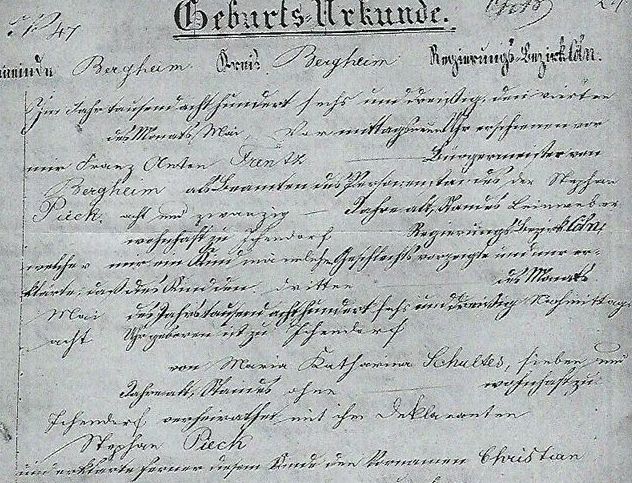 No 47
Geburts-Urkunde.
Gemeinde Bergheim Kreis Bergheim Regierungs-Bezirk Cöln.
Im Jahr tausend acht hundert sechs und dreißig, den vierten
des Monats Mai, Vormittags neun Uhr erschienen vor
mir Franz Anton Bürgermeister von
Bergheim als Beamten des Personenstandes der Stephan
Pieck, acht und zwanzig Jahre alt, Standes Leinweber
wohnhaft zu Ichendorf Regierungsbezirk Cöln,
welcher mir ein Kind männlichen Geschlechts vorzeigte und mir er-
klärte, daß dies Kind den dritten des Monats
Mai des Jahrs tausend acht hundert sechs und dreißig Nachmittags
acht Uhr geboren ist zu Ichendorf
von Maria Katharina Schultes, sieben und
Jahre alt, Standes ohne wohnhaft zu
Ichendorf verheirathet mit ihm Deklaranten
Stephan Pieck
und erklärte ferner diesem Kinde den Vornamen Christian